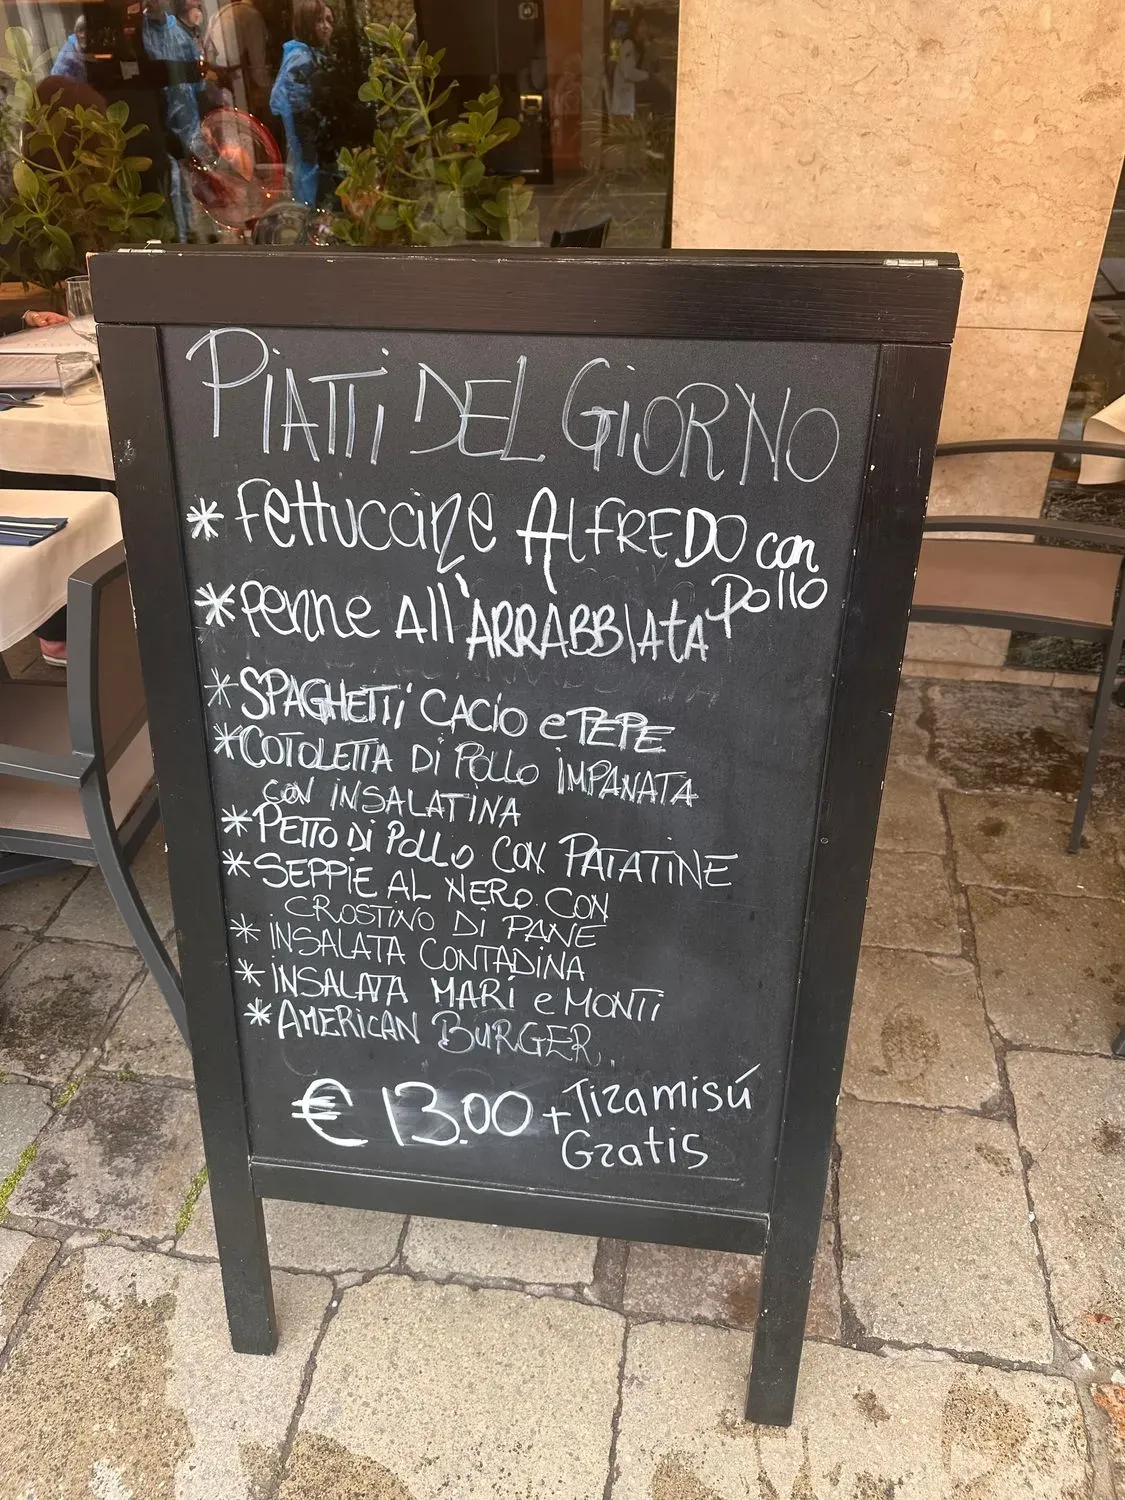 PIATTI DEL GIORNO
* Fettuccine ALFREDO con
Pollo
* Penne All'ARRABBIATA
* SPAGHETTI CACIO e PEPE
* COTOLETTA DI POLLO IMPANATA
CON INSALATINA
* PETTO DI POLLO CON PATATINE
* SEPPIE AL NERO CON
CROSTINO DI PANE
* INSALATA CONTADINA
* INSALATA MARI e MONTI
* AMERICAN BURGER
€ 13.00 + Tiramisú
Gratis